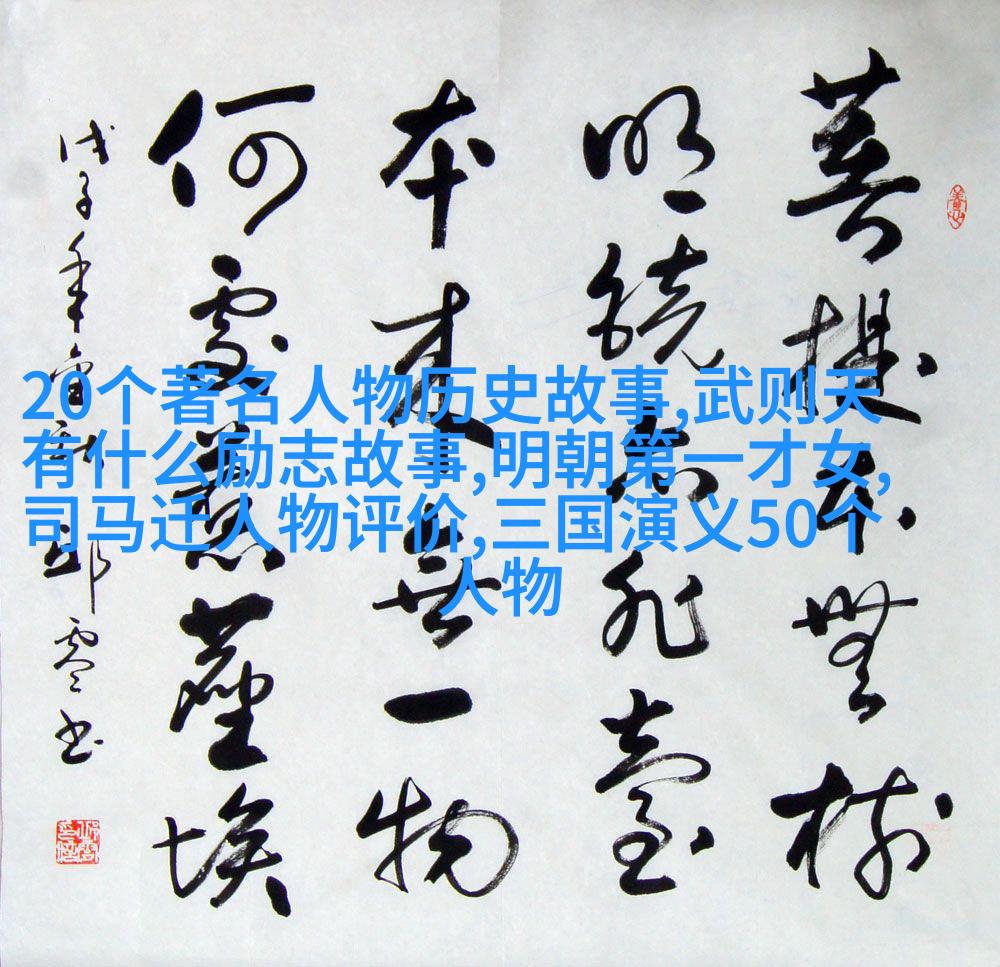 菩提本無树
明镜亦非臺
本来無一物
何處惹塵埃
戊子年 零书
20个著名人物历史故事,武则天
有什么励志故事,明朝第一才女,
司马迁人物评价,三国演义50个
人物